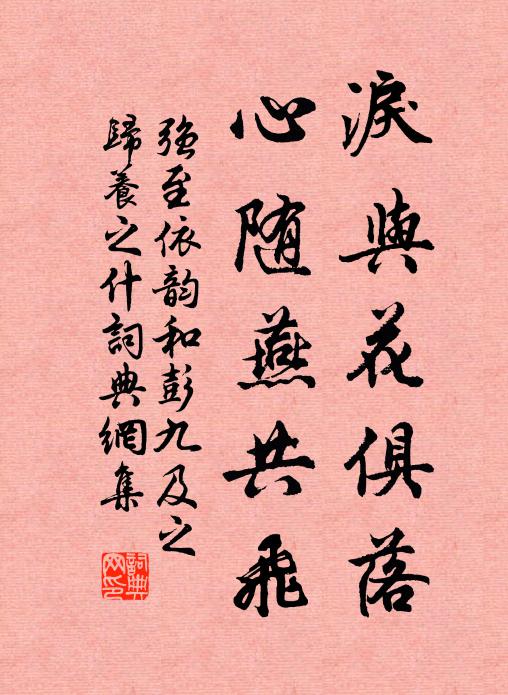 淚與花俱落
心随燕共飛
強至依韵和彭九及之
歸養之什詞典網集
詞典
网印